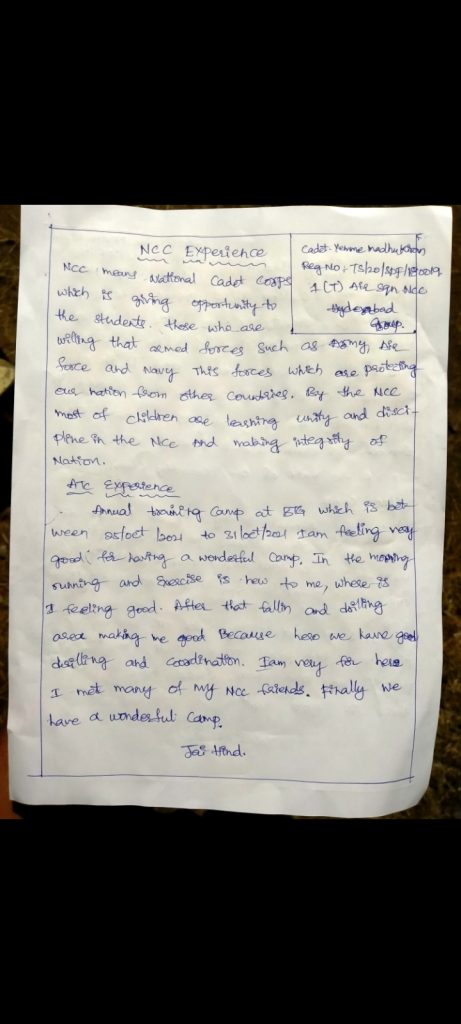 NCC Experience
Cadet. Yemme madhukiran
Reg No : TS/20/SDF/180019
1 (T) Air Sqn NCC
Hyderabad
Group.
NCC means National Cadet Corps
which is giving opportunity to
the students. those who are
willing that armed forces such as Army, Air
force and Navy This forces which are protecting
our nation from other Countries. By the NCC
most of children are learning unity and disci-
pline in the NCC And making integrity of
Nation.
ATC Experience
Annual training Camp at BTG which is bet
ween 25/oct/2021 to 31/oct/2021 I am feeling very
good, for having a wonderful Camp. In the morning
running and Exercise is new to me, where is
I feeling good. After that fallin and drilling
area making me good Because here we have good
drilling and Coordination. I am very for here
I met many of my NCC friends. Finally we
have a wonderful Camp.
Jai Hind.